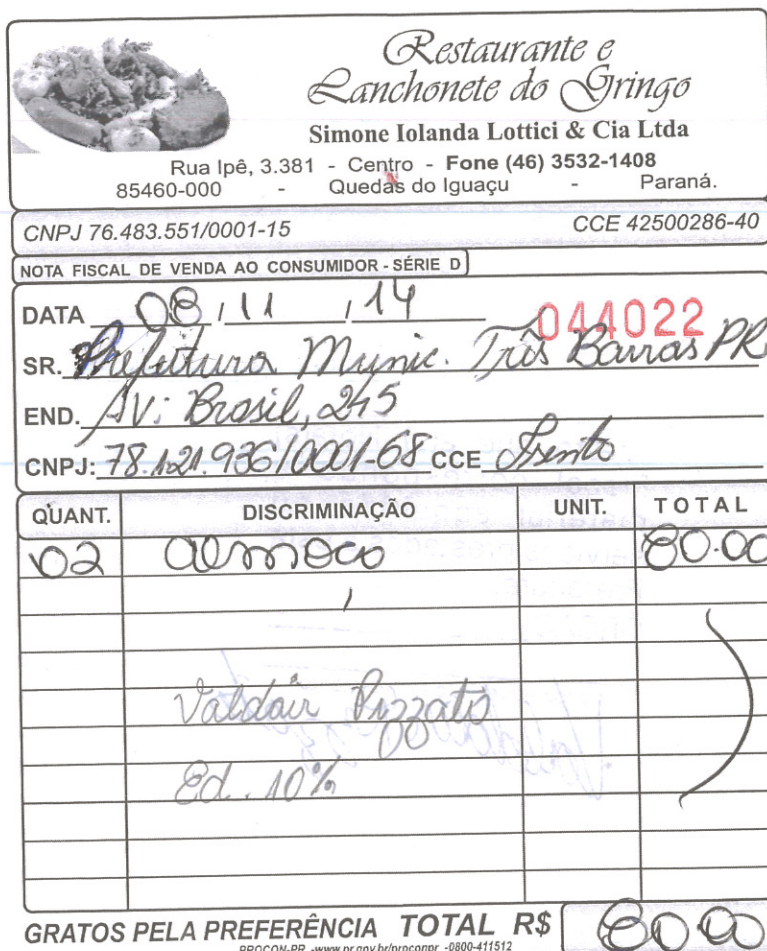 Restaurante e
Lanchonete do Gringo
Simone Iolanda Lottici & Cia Ltda
Rua Ipê, 3.381 - Centro - Fone (46) 3532-1408
85460-000 - Quedas do Iguaçu - Paraná.
CNPJ 76.483.551/0001-15 CCE 42500286-40
NOTA FISCAL DE VENDA AO CONSUMIDOR - SÉRIE D
DATA 08 / 11 / 14 044022
SR. Prefeitura Munic. Três Barras PR
END. AV: Brasil, 245
CNPJ: 78.121.936/0001-68 CCE Isento
QUANT. DISCRIMINAÇÃO UNIT. TOTAL
02 almoço 80.00
Valdair Pizzato
Ed. 10%
GRATOS PELA PREFERÊNCIA TOTAL R$ 80.00
PROCON-PR -www.pr.gov.br/proconpr -0800-411512